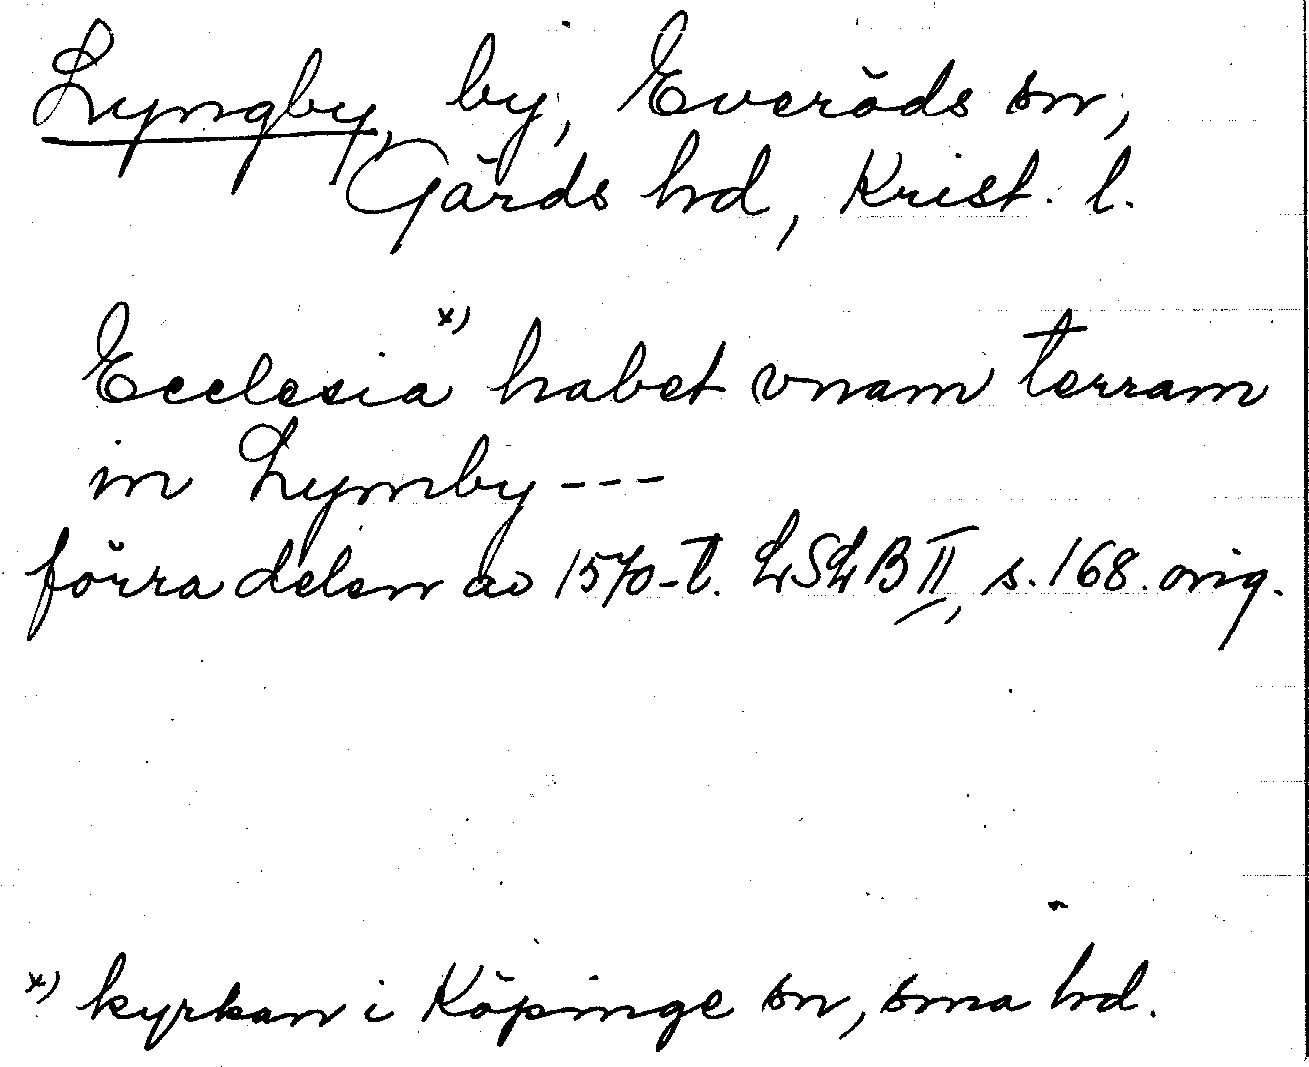 Lyngby, by, Everöds sn,
Gärds hd, Krist. l.
Ecclesia x) habet vnam terram
in Lymby ---
förra delen av 1570-t. LSLB II, s. 168. orig.
x) kyrkan i Köpinge sn, sma hd.